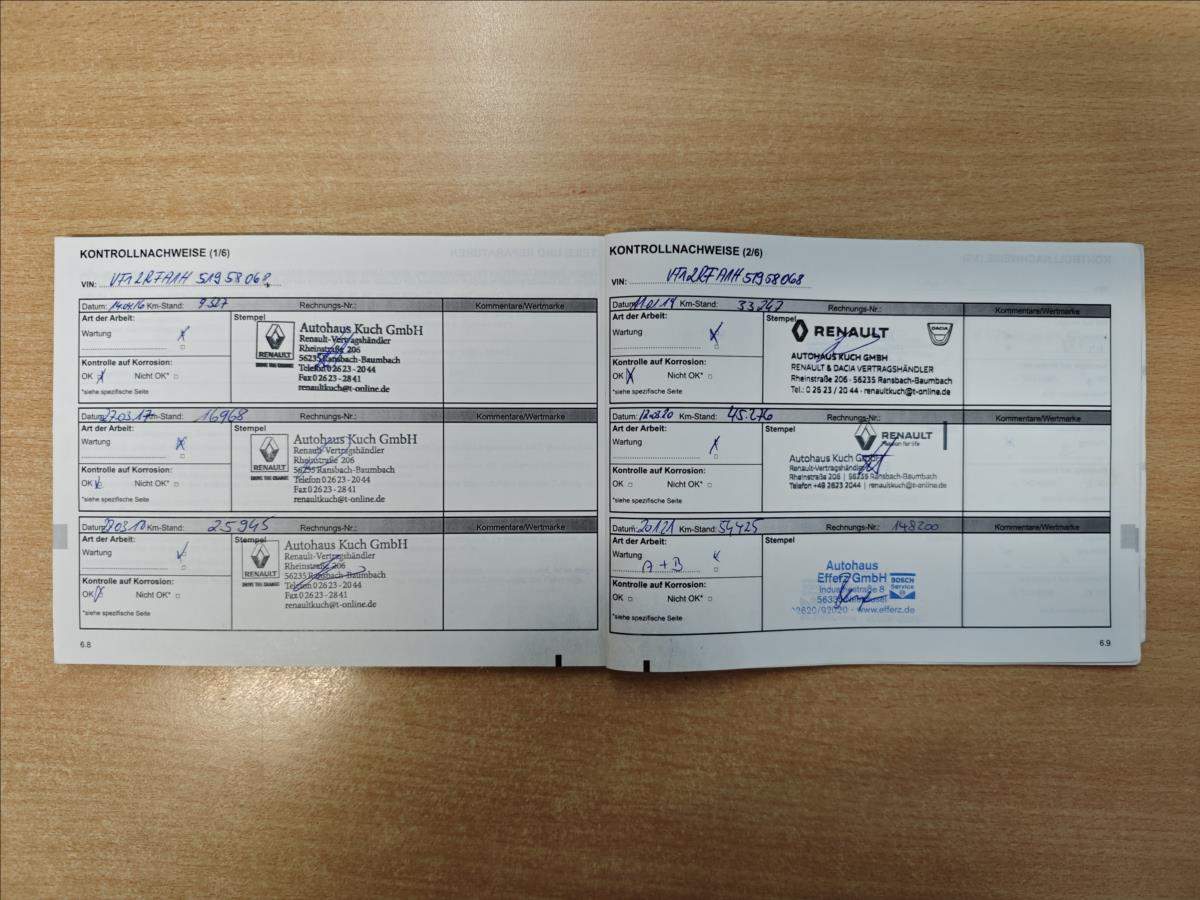 KONTROLLNACHWEISE (1/6)
VIN: VF12RFA1H 51958068
Datum: 14.04.16 Km-Stand: 9 327 Rechnungs-Nr.: Kommentare/Wertmarke
Art der Arbeit: Stempel
Wartung X
Kontrolle auf Korrosion:
OK X Nicht OK*
*siehe spezifische Seite
RENAULT
DRIVE THE CHANGE
Autohaus Kuch GmbH
Renault-Vertragshändler
Rheinstraße 206
56235 Ransbach-Baumbach
Telefon 0 26 23 - 20 44
Fax 0 26 23 - 28 41
renaultkuch@t-online.de
Datum: 27.03.17 Km-Stand: 16968 Rechnungs-Nr.: Kommentare/Wertmarke
Art der Arbeit: Stempel
Wartung X
Kontrolle auf Korrosion:
OK Nicht OK*
*siehe spezifische Seite
RENAULT
DRIVE THE CHANGE
Autohaus Kuch GmbH
Renault-Vertragshändler
Rheinstraße 206
56235 Ransbach-Baumbach
Telefon 0 26 23 - 20 44
Fax 0 26 23 - 28 41
renaultkuch@t-online.de
Datum: Km-Stand: 25945 Rechnungs-Nr.: Kommentare/Wertmarke
Art der Arbeit: Stempel
Wartung
Kontrolle auf Korrosion:
OK Nicht OK*
*siehe spezifische Seite
RENAULT
DRIVE THE CHANGE
Autohaus Kuch GmbH
Renault-Vertragshändler
Rheinstraße 206
56235 Ransbach-Baumbach
Telefon 0 26 23 - 20 44
Fax 0 26 23 - 28 41
renaultkuch@t-online.de
6.8
KONTROLLNACHWEISE (2/6)
VIN: VF12RFA1H 51958068
Datum: Km-Stand: 33247 Rechnungs-Nr.: Kommentare/Wertmarke
Art der Arbeit: Stempel
Wartung X
Kontrolle auf Korrosion:
OK X Nicht OK*
*siehe spezifische Seite
RENAULT DACIA
AUTOHAUS KUCH GMBH
RENAULT & DACIA VERTRAGSHÄNDLER
Rheinstraße 206 - 56235 Ransbach-Baumbach
Tel.: 0 26 23 / 20 44 - renaultkuch@t-online.de
Datum: 12.03.20 Km-Stand: 45.276 Rechnungs-Nr.: Kommentare/Wertmarke
Art der Arbeit: Stempel
Wartung X
Kontrolle auf Korrosion:
OK Nicht OK*
*siehe spezifische Seite
RENAULT
Passion for life
Autohaus Kuch GmbH
Renault-Vertragshändler
Rheinstraße 206 | 56235 Ransbach-Baumbach
Telefon +49 2623 2044 | renaultkuch@t-online.de
Datum: Km-Stand: 54425 Rechnungs-Nr.: 148200 Kommentare/Wertmarke
Art der Arbeit: Stempel
Wartung
A + B
Kontrolle auf Korrosion:
OK Nicht OK*
*siehe spezifische Seite
Autohaus
Efferz GmbH
Industriestraße 8
BOSCH
Service
/92020 - www.efferz.de
6.9